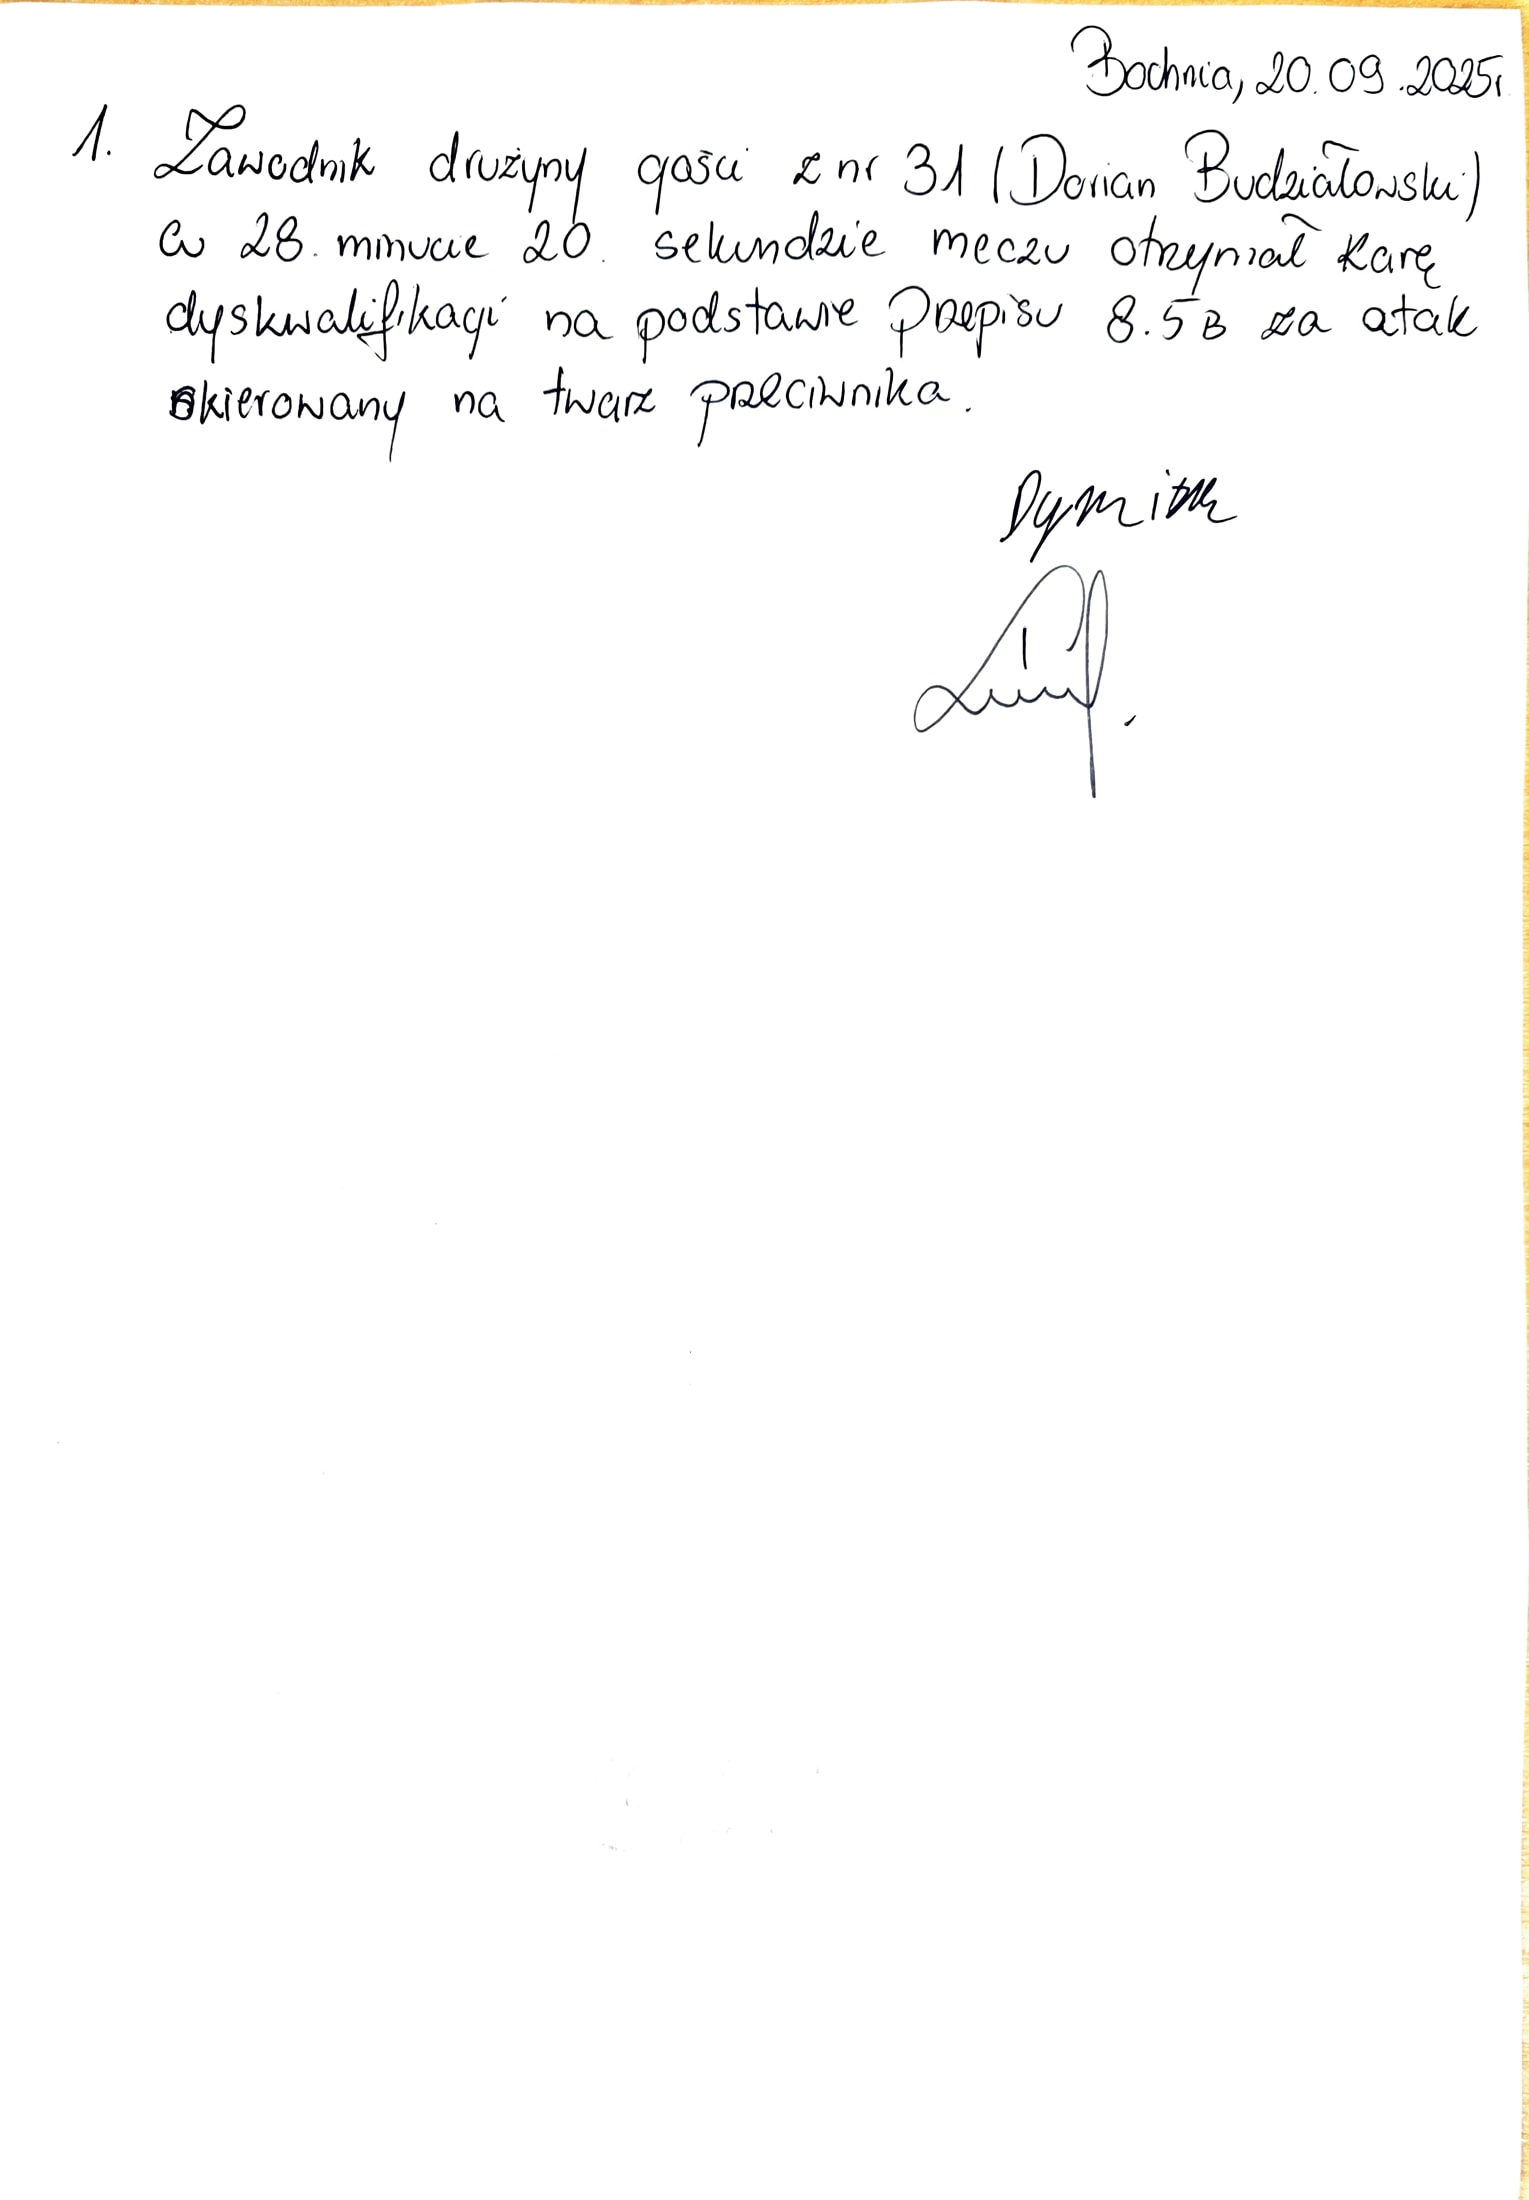 Bochnia, 20.09.2025r.
1. Zawodnik drużyny gości z nr 31 (Dorian Budziałowski)
w 28. minucie 20. sekundzie meczu otrzymał karę
dyskwalifikacji na podstawie Przepisu 8.5B za atak
skierowany na twarz przeciwnika.